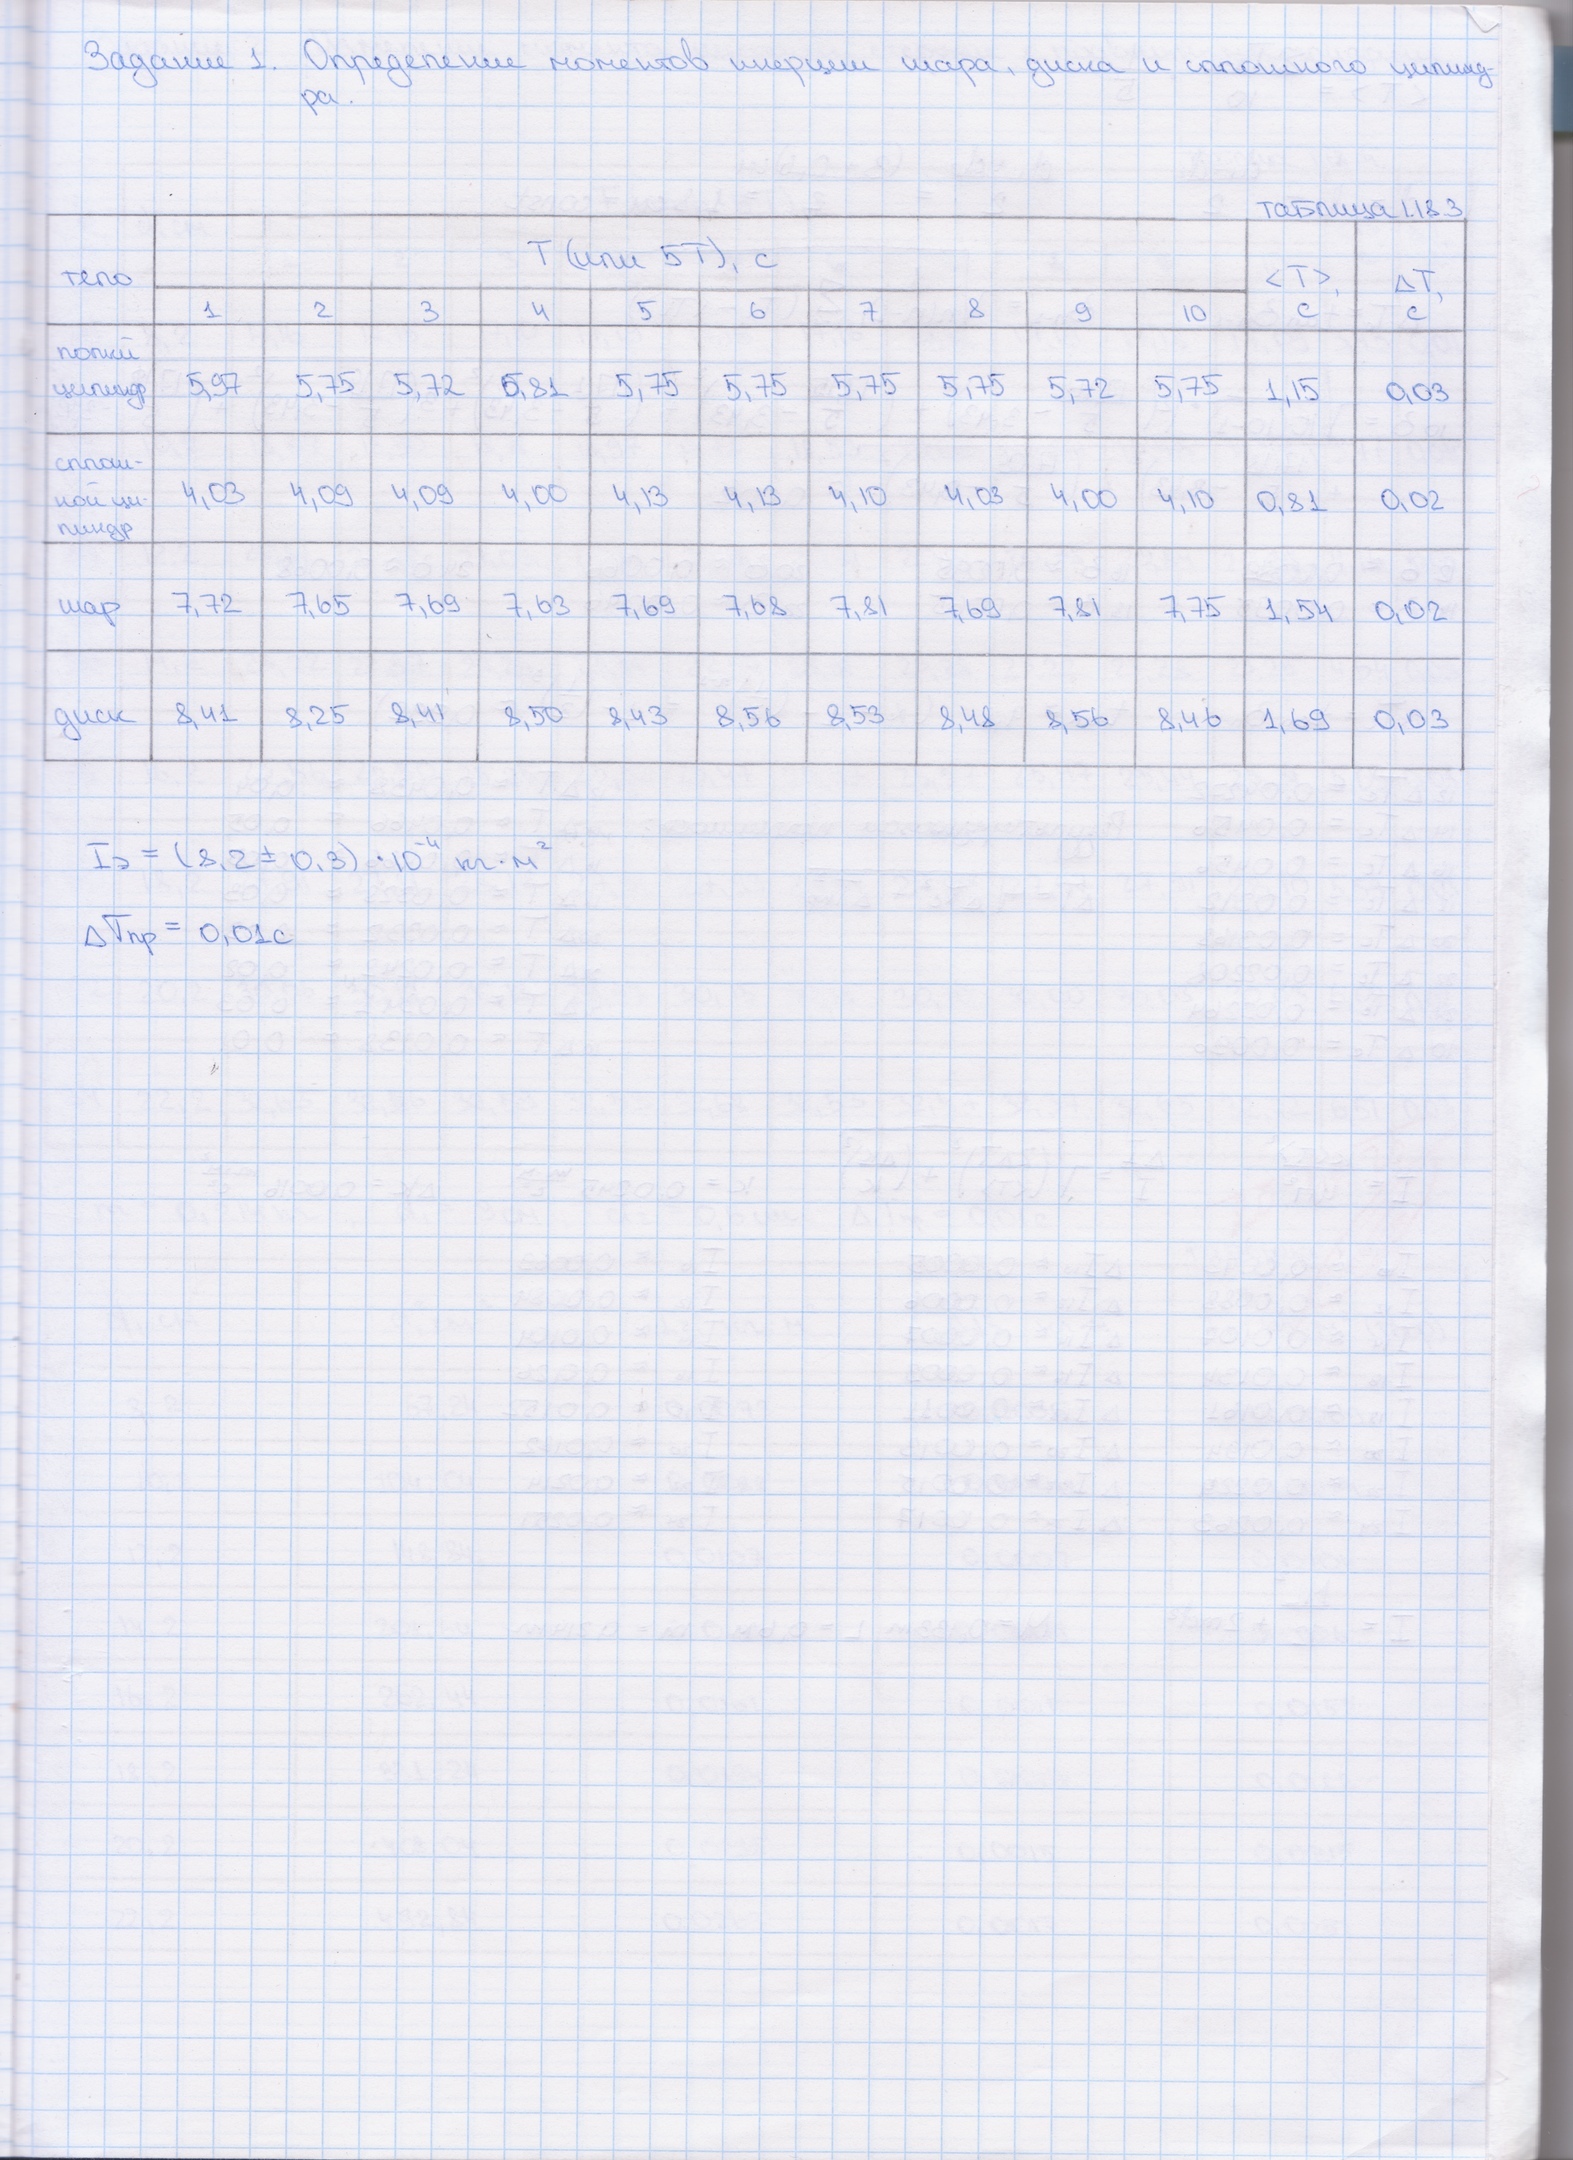 Задание 1. Определение моментов инерции шара, диска и сплошного цилинд-
ра.
таблица 1.18.3
тело
T (или 5T), с
<T>, с
ΔT, с
1 2 3 4 5 6 7 8 9 10
полый цилиндр 5,97 5,75 5,72 5,81 5,75 5,75 5,75 5,75 5,72 5,75 1,15 0,03
сплош-
ной ци-
линдр 4,03 4,09 4,09 4,00 4,13 4,13 4,10 4,03 4,00 4,10 0,81 0,02
шар 7,72 7,65 7,69 7,63 7,69 7,68 7,81 7,69 7,81 7,75 1,54 0,02
диск 8,41 8,25 8,41 8,50 8,43 8,56 8,53 8,48 8,56 8,46 1,69 0,03
Iэ = (8,2 ± 0,3) · 10⁻⁴ кг · м²
ΔTпр = 0,01с